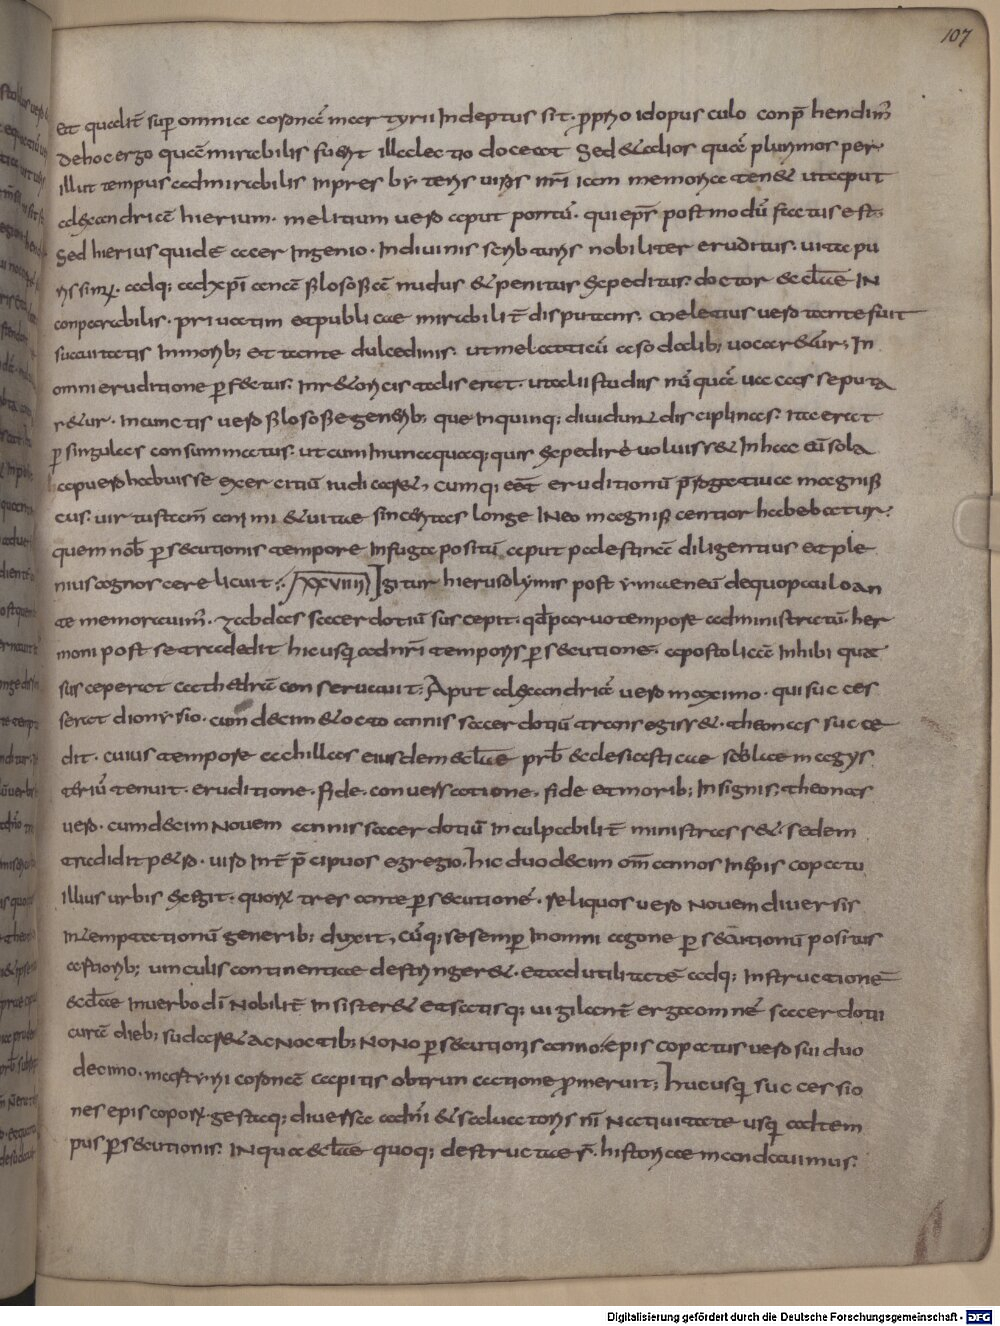 107
Et qualit̄ sup omnia coronā martyrii Indeptus sit. p̄prio Idopus culo conp̄hendim̄
De hoc ergo quā mirabilis fuerit illa lectio doceat Sed &alios quā plurimos per
Illut tempus admirabilis Inpres byteris uiris nr̄i iam memoria tenet ut aput
alexandriā hierium. melitium uero aput pontū. qui ep̄s postmodū factus est;
Sed hierius quidē acer Ingenio. In diuinis scribturis nobiliter eruditus. uita pu
rissim. adq; ad xp̄i canā filosofiā nudus & penitus expeditus. doctor & eclae IN
conparabilis. priuatim et publicae mirabilit̄ disputans. Meletius uero tante fuit
suauitatis In morib; et tante dulcedinis. ut mel atticū a sodalib; uocaretur; In
omni eruditione perfectus. In rethoricis talis erat. ut aliis studiis nūquā uacas se puta
retur. In cunctis uero filosofie generib; que In quinq; diuidunt disciplinas. Ita erat
p singulas consummatus. ut cum In unaquaq; quis expedire uoluisset In hac eū sola
a puero habuisse exercitiū iudicaret, cumq; ēēt eruditionū p̄rogatiua magnifi
cus. uirtus tam̄ animi & uitae sinceritas longe IN eo magnificentior habebatur.
quem nob̄ p secutionis tempore In fuga positū aput palestinā diligentius et ple
nius cognoscere licuit; XXVIIII Igitur hierusolymis post ymaeneū de quo paulo an
te memorauim̄. zabdas sacerdotiū suscepit. qd̄ paruo tempore administratū. her
moni post se tradedit hic usq; ad nr̄i temporis p secutione. apostolicā Inhibi quā
susceperat cathedrā conseruauit; Aput alexandriā uero maximo. qui suc ces
serat dionysio. cum decim & octo annis sacerdotiū transegisset. theonas succe
dit. cuius tempore achillas eiusdem eclae prb̄ & clesiasticae scolae magys
teriū tenuit. eruditione. fide. conuersatione. fide et morib; Insignis. theonas
uero. cum decim Nouem annis sacerdotiū Inculpabilit̄ ministrasset. sedem
tradidit petro. uiro Int̄ p̄cipuos egregio. hic duodecim om̄ annos In epis copatu
illius urbis exegit. quorum tres ante p secutionē. reliquos uero Nouem diuersis
Intemptationū generib; duxit, cūq; se semp In omni agone p secutionū positus
astiorib; uinculis continentiae destringeret. et ad utilitatē adq; Instructionē
eclae In uerbo dī Nobilit̄ Insisteret et satisq; uigilant̄ erga omnē sacerdotii
curā dieb; sudaret ac Noctib; Nono p secutionis anno. epis copatus uero sui duo
decimo. martyrii coronā capitis obtruncatione p̄meruit; Hucusq; successio
nes epis coporum. gestaq; diuersa ad nr̄i & saluatoris nr̄i Natiuitate usq; ad tem
pus p secutionis. IN qua eclae quoq; destructae s̄. historiae mandauimus.
Digitalisierung gefördert durch die Deutsche Forschungsgemeinschaft - DFG